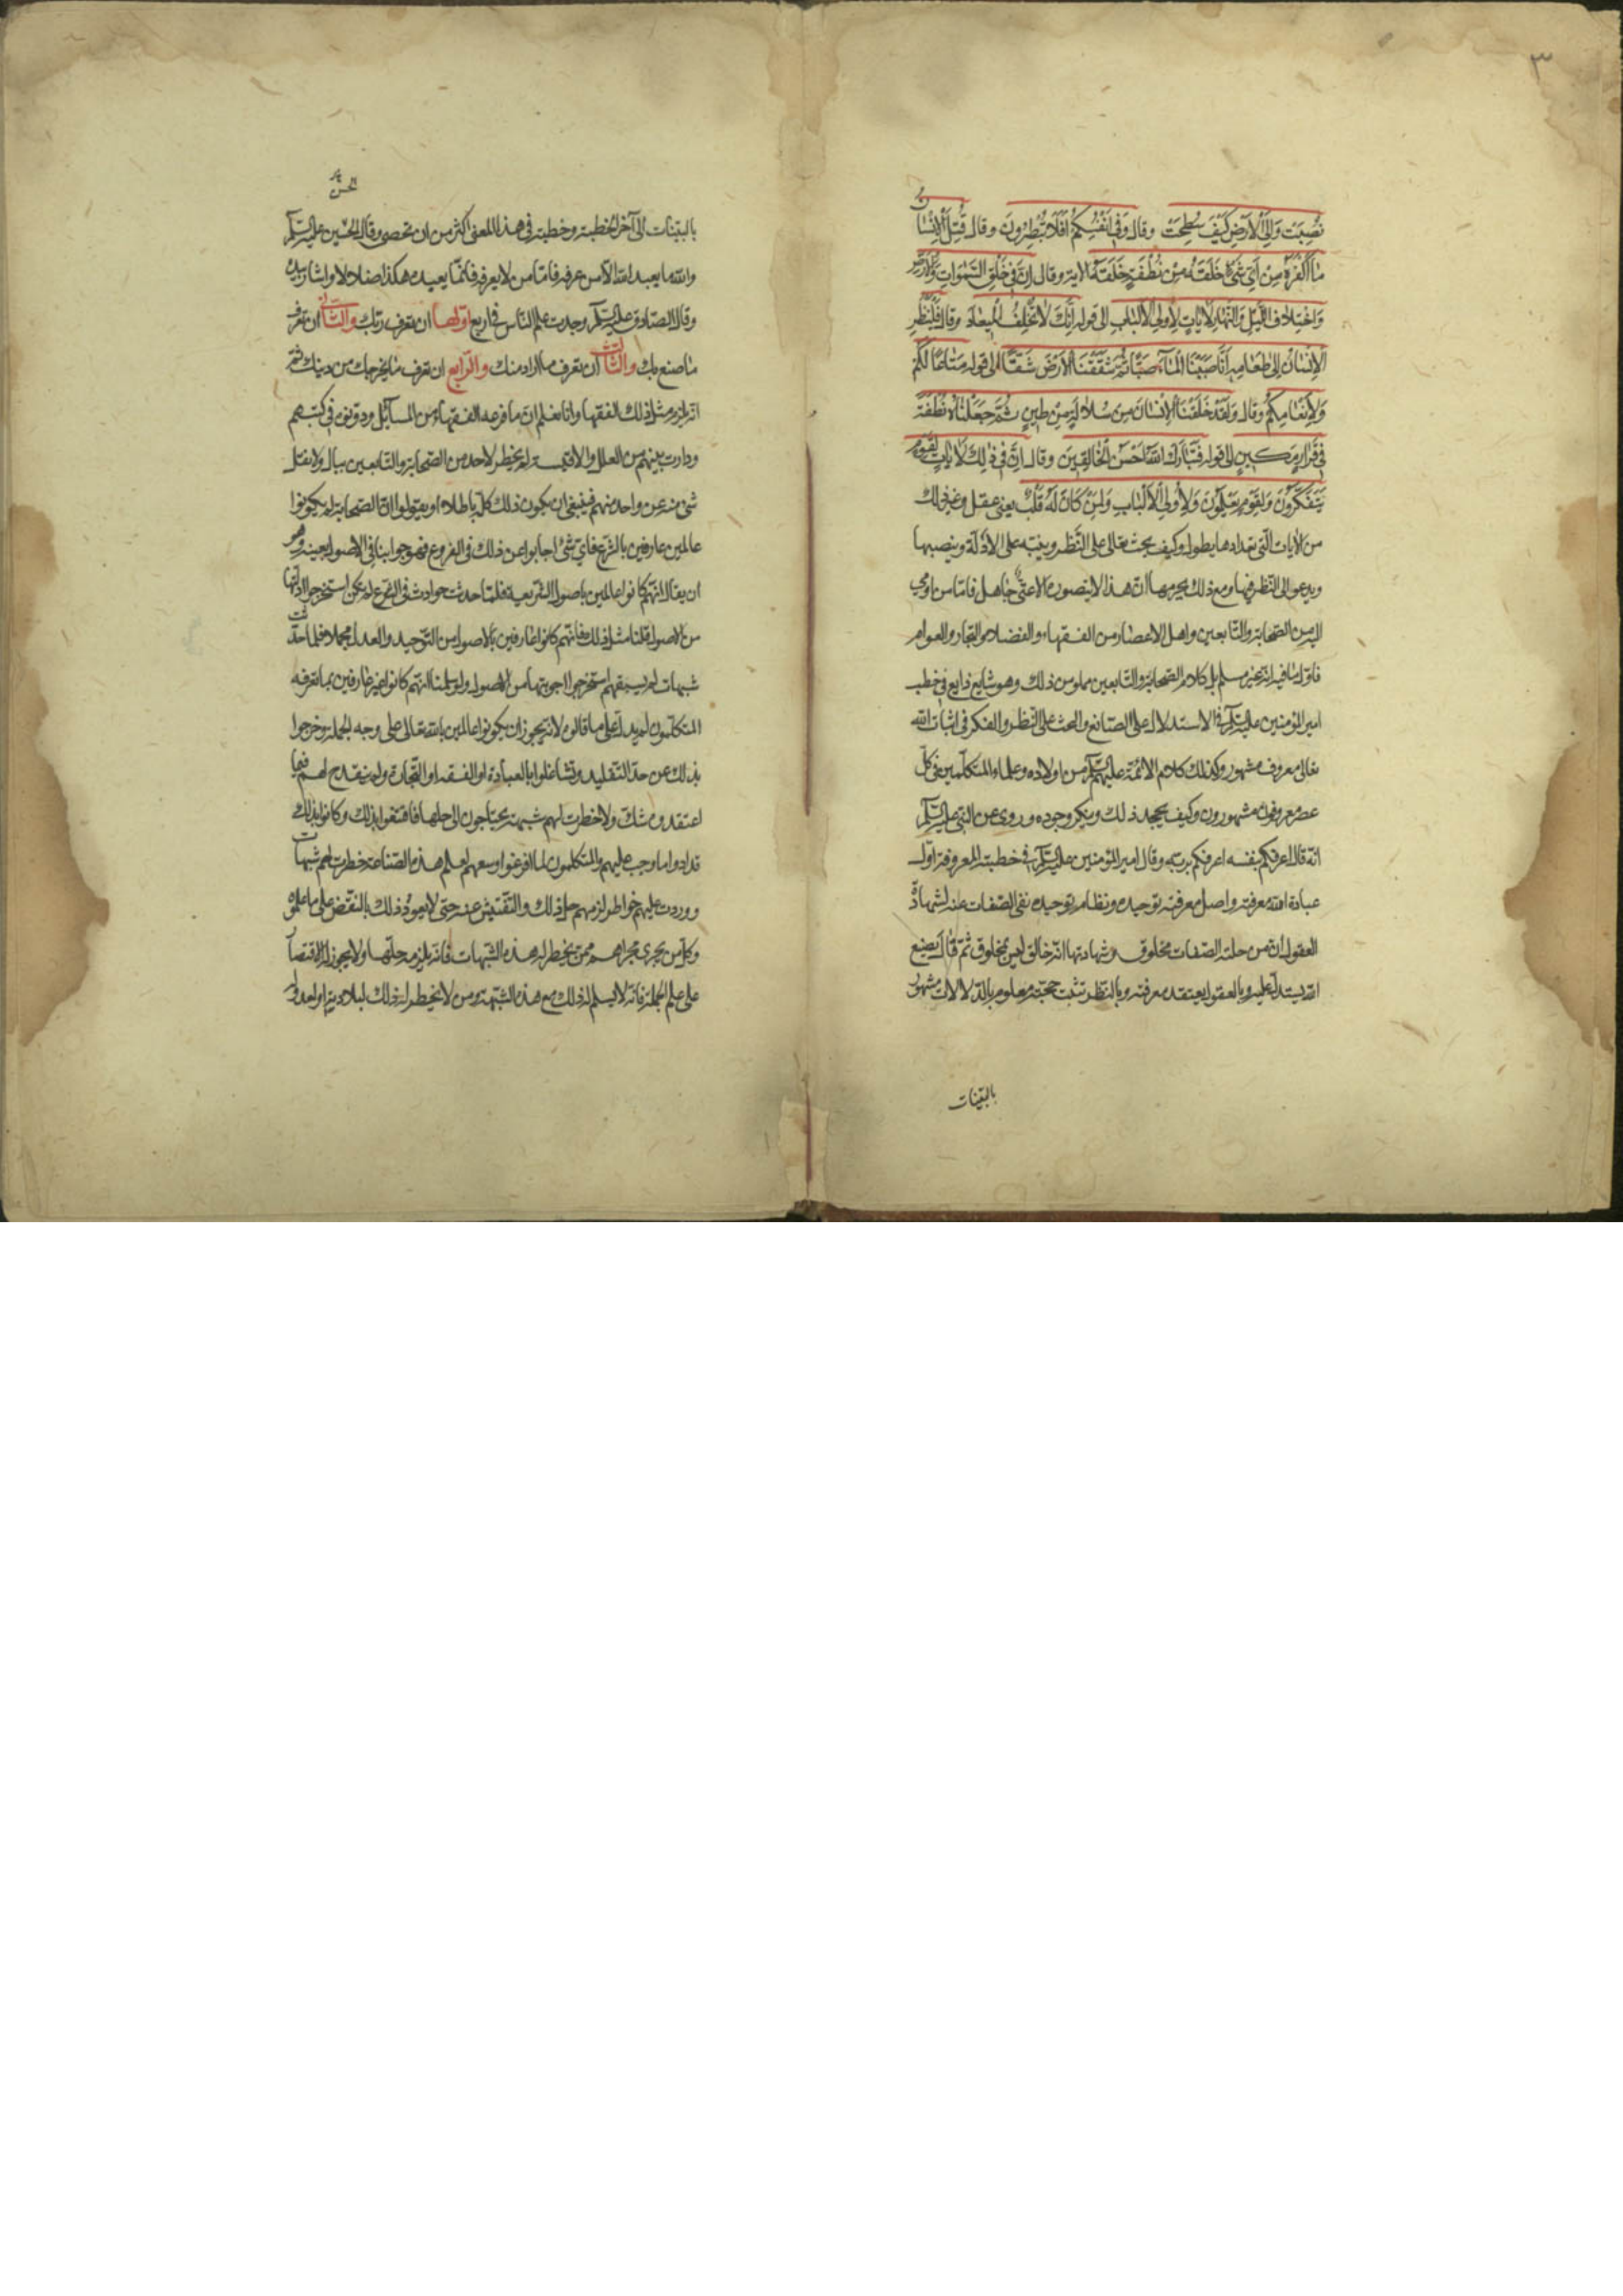 ٣
نُصِبَتْ وَاِلَى الْاَرْضِ كَيْفَ سُطِحَتْ وقال وَفِي اَنْفُسِكُمْ اَفَلَا تُبْصِرُونَ وقال قُتِلَ الْاِنْسَانُ
مَا اَكْفَرَهُ مِنْ اَيِّ شَيْءٍ خَلَقَهُ مِنْ نُطْفَةٍ خَلَقَهُ الاية وقال اِنَّ فِي خَلْقِ السَّمٰوَاتِ وَالْاَرْضِ
وَاخْتِلَافِ اللَّيْلِ وَالنَّهَارِ لَاٰيَاتٍ لِاُولِي الْاَلْبَابِ الى قوله اِنَّكَ لَا تُخْلِفُ الْمِيعَادَ وقال فَلْيَنْظُرِ
الْاِنْسَانُ اِلَى طَعَامِهِ اَنَّا صَبَبْنَا الْمَاءَ صَبًّا ثُمَّ شَقَقْنَا الْاَرْضَ شَقًّا الى قوله مَتَاعًا لَكُمْ
وَلِاَنْعَامِكُمْ وقال وَلَقَدْ خَلَقْنَا الْاِنْسَانَ مِنْ سُلَالَةٍ مِنْ طِينٍ ثُمَّ جَعَلْنَاهُ نُطْفَةً
فِي قَرَارٍ مَكِينٍ الى قوله فَتَبَارَكَ اللهُ اَحْسَنُ الْخَالِقِينَ وقال اِنَّ فِي ذٰلِكَ لَاٰيَاتٍ لِقَوْمٍ
يَتَفَكَّرُونَ وَلِقَوْمٍ يَعْقِلُونَ وَلِاُولِي الْاَلْبَابِ وَلِمَنْ كَانَ لَهُ قَلْبٌ يعني عقل وغير ذلك
من الايات التي تعدادها يطول وكيف يحث تعالى على النظر وينبه على الادلة وينصبها
ويدعو الى النظر فيها ومع ذلك يحرمها ان هذا لا يتصوره الا غبي جاهل فاما من اومي
اليه من الصحابة والتابعين واهل الاعصار من الفقهاء والفضلاء والتجار والعوام
فاول ما فيه انه غير مسلم بل كلام الصحابة والتابعين مملو من ذلك وهو شايع ذايع في خطب
امير المؤمنين عليه السلام في الاستدلال على الصانع والحث على النظر والفكر في اثبات الله
تعالى معروف مشهور وكذلك كلام الائمة عليهم السلام من اولاده وعلماء المتكلمين في كل
عصر معروفون مشهورون وكيف يجحد ذلك وينكر وجوده وروى عن النبي عليه السلام
انه قال اعرفكم بنفسه اعرفكم بربه وقال امير المؤمنين عليه السلام في خطبته المعروفة اول
عبادة الله معرفته واصل معرفته توحيده ونظام توحيده نفي الصفات عنه لشهادة
العقول ان من حلته الصفات مخلوق وشهادتها انه خالق ليس بمخلوق ثم قال بصنع
الله يستدل عليه وبالعقول يعتقد معرفته وبالنظر تثبت حجته معلوم بالدلالات مشهور
بالبينات
بالبينات الى آخر الخطبة وخطبه في هذا المعنى اكثر من ان تحصى وقال الحسين عليه السلام
والله ما يعبد الله الا من عرفه فاما من لا يعرفه فانما يعبده هكذا ضلالا واشار بيده
وقال الصادق عليه السلام وجدت علم الناس في اربع اولها ان تعرف ربك والثاني ان تعرف
ما صنع بك والثالث ان تعرف ما اراد منك والرابع ان تعرف ما يخرجك من دينك ثم
انه يلزم مثل ذلك الفقها وانا نعلم ان ما فرعه الفقهاء من المسائل ودونوه في كتبهم
ودارت بينهم من العلل والاقيسة لم يخطر لاحد من الصحابة والتابعين ببال ولا نقل
شئ منه عن واحد منهم فينبغي ان يكون ذلك كله باطلا او يقولوا ان الصحابة لم يكونوا
عالمين عارفين بالشرع فاي شئ اجابوا عن ذلك في الفروع فهو جوابنا في الاصول بعينه وهو
ان يقال انهم كانوا عالمين باصول الشريعة فلما حدثت حوادث في الشرع لم تكن استخرجوا ادلتها
من الاصول قلنا مثل ذلك فانهم كانوا عارفين بالاصول من التوحيد والعدل مجملا فلما حدثت
شبهات لم يسبقهم استخرجوا اجوبتها من الاصول ولو سلمنا انهم كانوا غير عارفين بما تعرفه
المتكلمون لم يدل على ما قالوه لانه يجوز ان يكونوا عالمين بالله تعالى على وجه الجملة وخرجوا
بذلك عن حد التقليد وتشاغلوا بالعبادة او الفقه او التجارة ولم ينقدح لهم فيما
اعتقدوه شك ولا خطرت لهم شبهة يحتاجون الى حلها فاقتنعوا بذلك وكانوا بذلك
قد ادوا ما وجب عليهم والمتكلمون لما افرغوا وسعهم لعلم هذه الصناعة خطرت لهم شبهات
ووردت عليهم خواطر لزمهم حل ذلك والتفتيش عنه حتى لا يعود ذلك بالنقض على ما علموه
وكل من يجري مجراهم ممن يخطر له هذه الشبهات فانه يلزمه حلها ولا يجوز له الاقتصار
على علم الجملة فانه لا يسلم له ذلك مع هذه الشبهة ومن لا يخطر له ذلك لبلادته او لعدوله